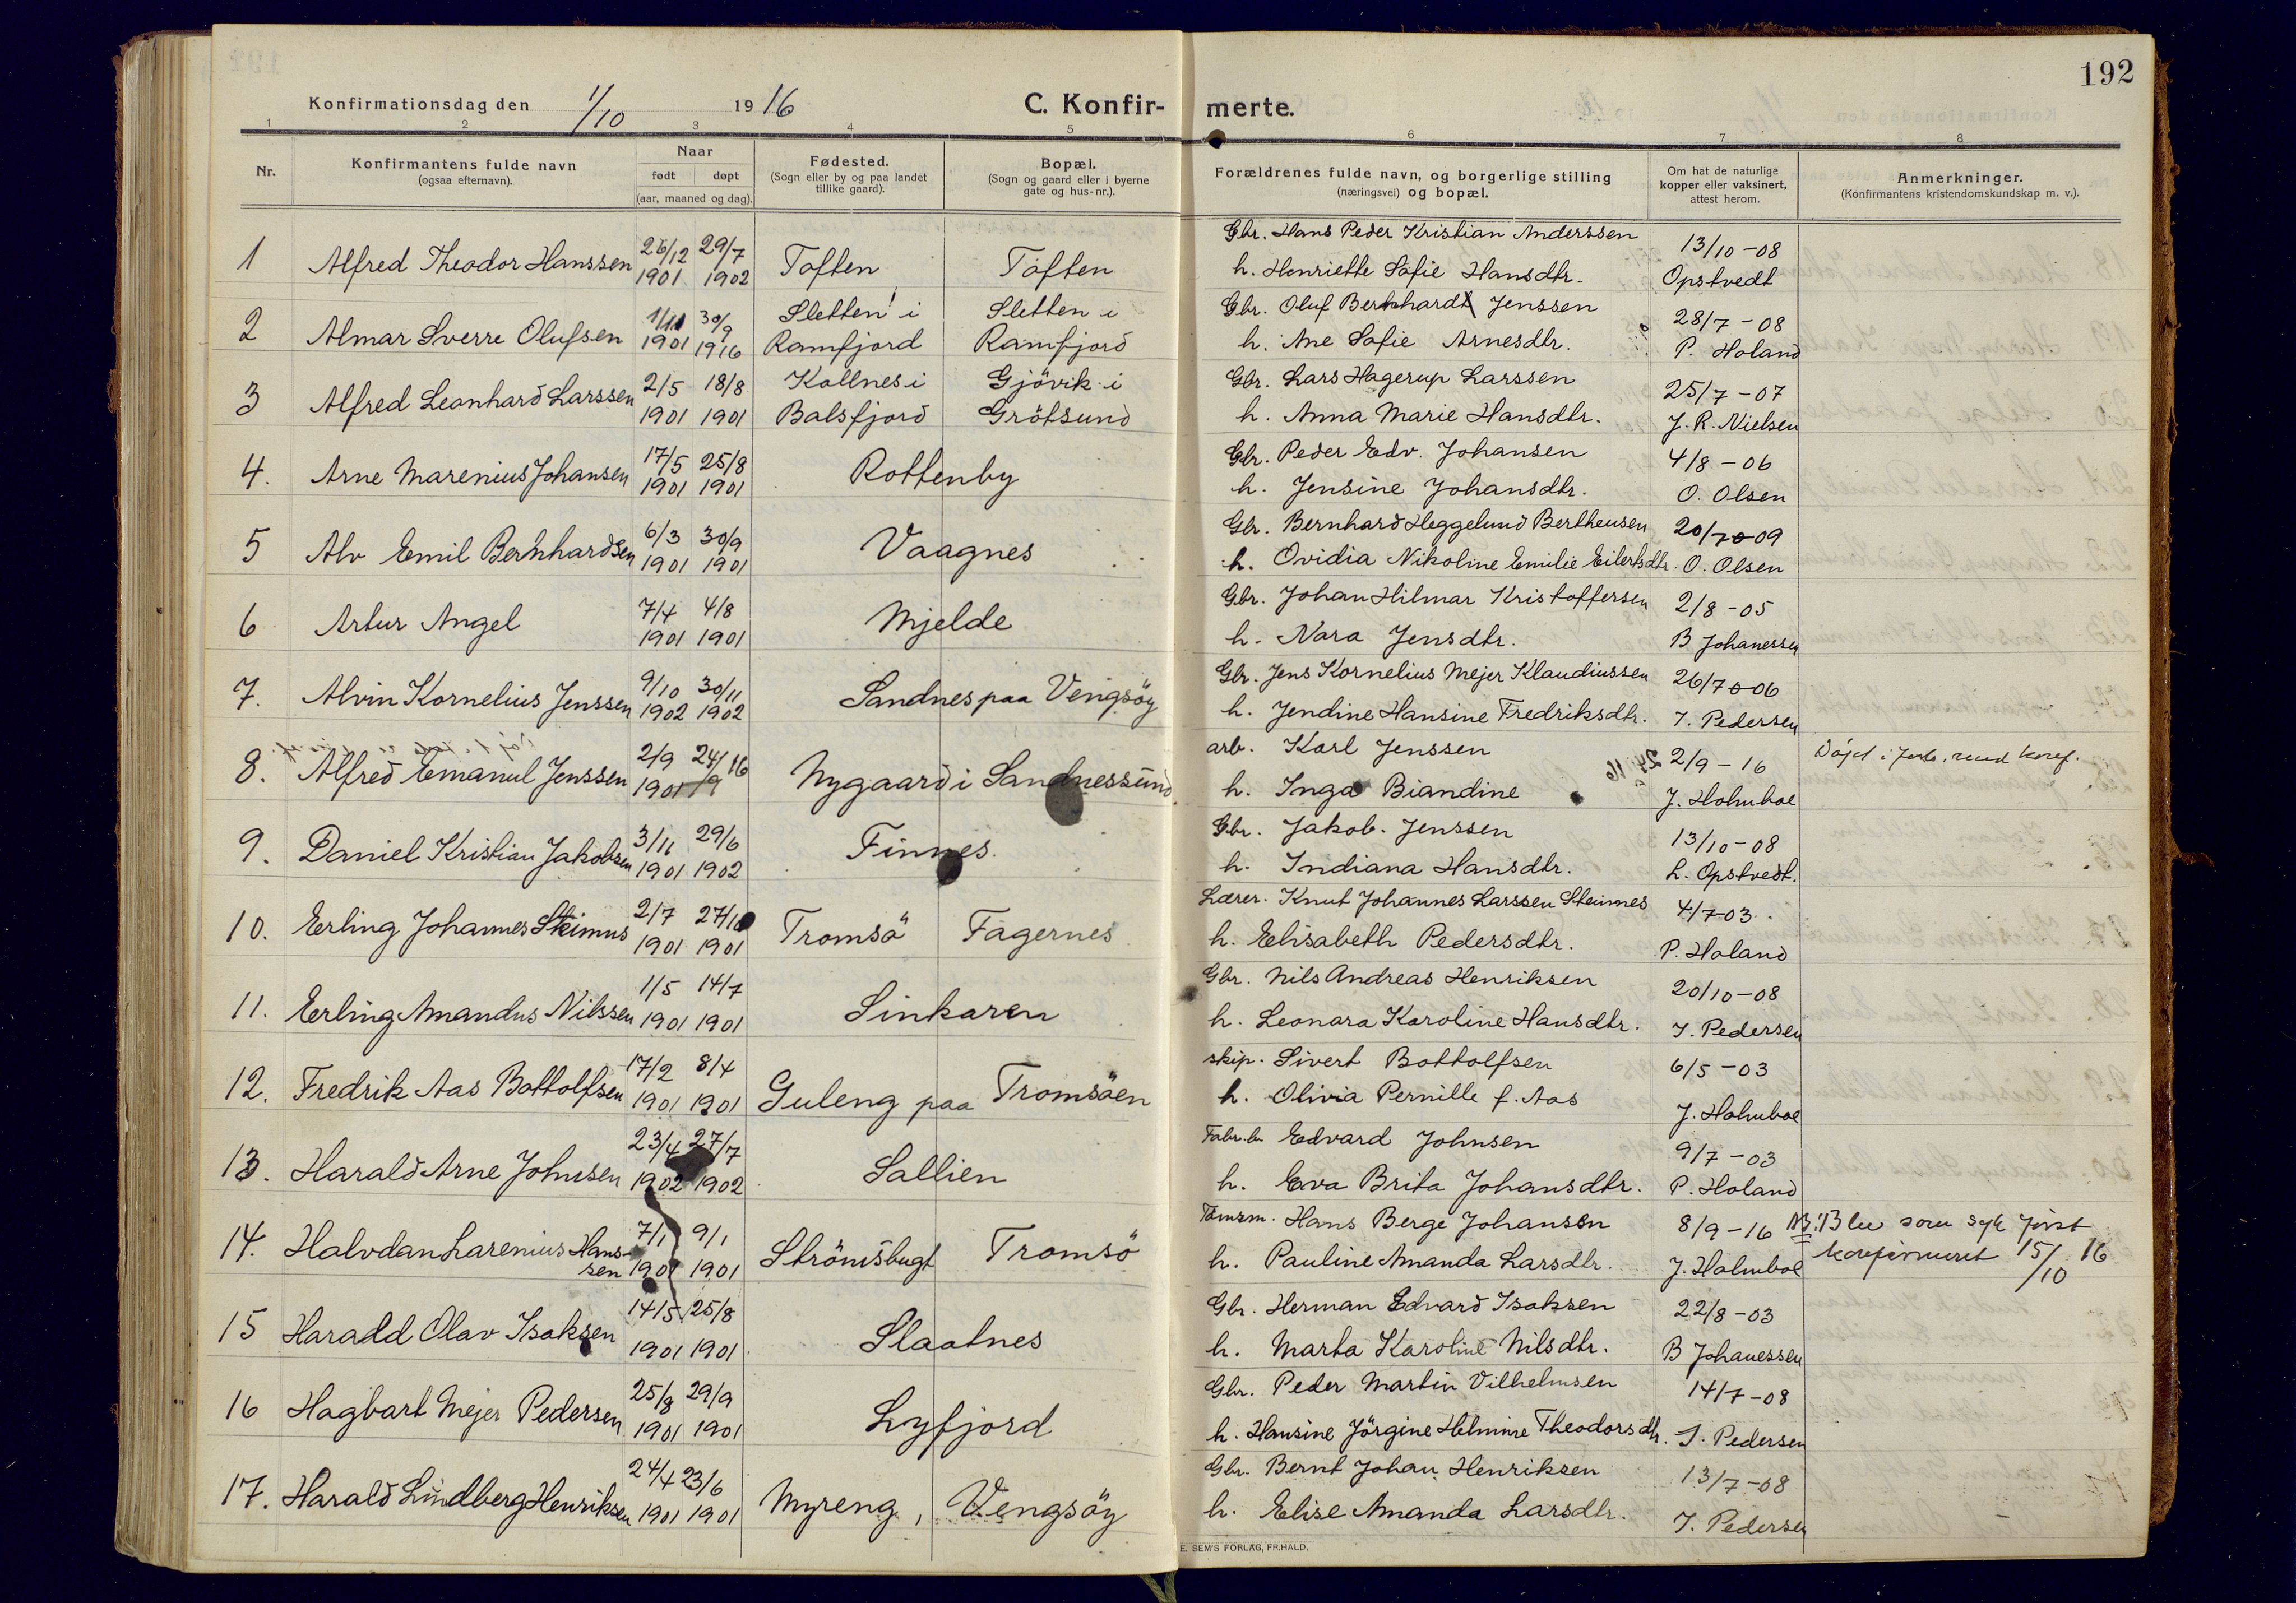 192
Konfirmationsdag den 1/10 1916 C. Konfir- merte.
1 2 3 4 5 6 7 8
Nr. Konfirmantens fulde navn (ogsaa efternavn). Naar født døpt (aar, maaned og dag). Fødested. (Sogn eller by og paa landet tillike gaard). Bopæl. (Sogn og gaard eller i byerne gate og hus-nr.). Forældrenes fulde navn, og borgerlige stilling (næringsvei) og bopæl. Om hat de naturlige kopper eller vaksinert, attest herom. Anmerkninger. (Konfirmantens kristendomskundskap m. v.).
1 Alfred Theodor Hanssen 26/12 1901 29/7 1902 Toften Toften Gbr. Hans Peder Kristian Anderssen 13/10-08
h. Henriette Sofie Hansdtr. Opstvedt
2 Almar Sverre Olufsen 1901 30/9 1916 Sletten i Ramfjord Sletten i Ramfjord Gbr. Oluf Bernhardt Jenssen 28/7-08
h. Ane Sofie Arnesdtr. P. Holand
3 Alfred Leonhard Larssen 2/5 1901 18/8 1901 Kollnes i Balsfjord Gjövik i Grötsund Gbr. Lars Hagerup Larssen 25/7-07
h. Anna Marie Hansdtr. J. R. Nielsen
4. Arne Marenius Johansen 17/5 1901 25/8 1901 Rottenby Gbr. Peder Edv. Johansen 4/8-06
h. Jensine Johansdtr. O. Olsen
5 Alv Emil Bernhardsen 6/3 1901 30/9 1901 Vaagnes Gbr. Bernhard Heggelund Bertheusen 20/7-09
h. Ovidia Nikoline Emilie Eilertsdtr. O. Olsen
6 Artur Angel 7/4 1901 4/8 1901 Mjelde Gbr. Johan Hilmar Kristoffersen 2/8-05
h. Nara Jensdtr. B Johanessen
7. Alvin Kornelius Jenssen 9/10 1902 30/11 1902 Sandnes paa Vengsöy Gbr. Jens Kornelius Mejer Klaudiussen 26/7-06
h. Jendine Hansine Fredriksdtr. I. Pedersen
8. Alfred Emanuel Jenssen 2/9 1901 24/9 16 Nygaard i Sandnessund arb. Karl Jenssen 2/9-16
h. Inga Biandine J. Holmboe
9. Daniel Kristian Jakobsen 3/11 1901 29/6 1902 Finnes. Gbr. Jakob. Jenssen 13/10-08
h. Indiana Hansdtr. L. Opstvedt.
10. Erling Johannes Steinnes 2/7 1901 27/10 1901 Tromsö Fagernes Lærer. Knut Johannes Larssen Steinnes 4/7-03.
h. Elisabeth Pedersdtr. P. Holand
11. Erling Amandus Nilssen 1/5 1901 14/7 1901 Sinkaren Gbr. Nils Andreas Henriksen 20/10-08
h. Leonara Karoline Hansdtr. I. Pedersen
12. Fredrik Aas Bottolfsen 17/2 1901 8/4 1901 Guleng paa Tromsöen skip. Sivert Bottolfsen 6/5-03
h. Olivia Pernille f. Aas J. Holmboe
13. Harald Arne Johnsen 23/4 1902 27/7 1902 Sallien Fabr.b. Edvard Johnsen 9/7-03
h. Eva Brita Johansdtr. P. Holand
14. Halvdan Larenius Hans- sen 7/1 1901 9/1 1901 Strömsbugt Tromsö Tömrm. Hans Berge Johansen 8/9-16 NB: Blev som syk först
h. Pauline Amanda Larsdtr. J. Holmboe konfirmeret 15/10 16
15 Harald Olav Isaksen 14/5 1901 25/8 1901 Slaatnes Gbr. Herman Edvard Isaksen 22/8-03
h. Marta Karoline Nilsdtr. B Johanessen
16 Hagbart Mejer Pedersen 25/8 1901 29/9 1901 Lyfjord Gbr. Peder Martin Vilhelmsen 14/7-08
h. Hansine Jörgine Helmine Theodorsdtr. I. Pedersen
17. Harald Lindberg Henriksen 24/4 1901 23/6 1901 Myreng, Vengsöy Gbr. Bernt Johan Henriksen 13/7-08
h. Elise Amanda Larsdtr. I. Pedersen
E. SEM'S FORLAG, FR.HALD.